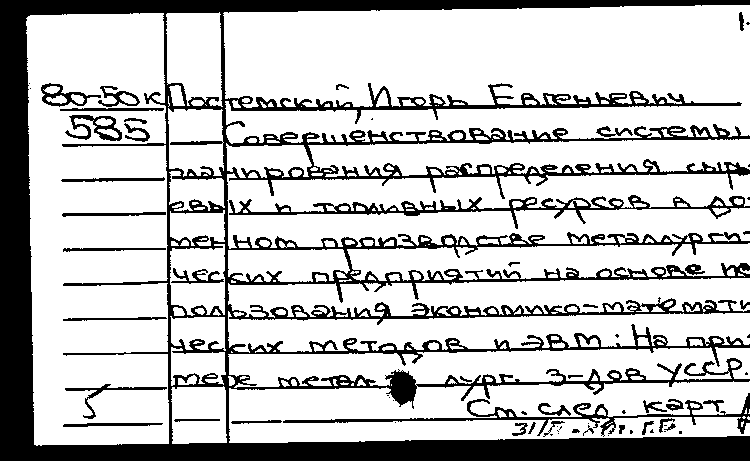 80-50к Постемский, Игорь Евгеньевич.
585 Совершенствование системы
планирования распределения сырь-
евых и топливных ресурсов в до-
менном производстве металлурги-
ческих предприятий на основе ис-
пользования экономико-математи-
ческих методов и ЭВМ: На при-
мере метал-лург. з-дов УССР.
5 См. след. карт.